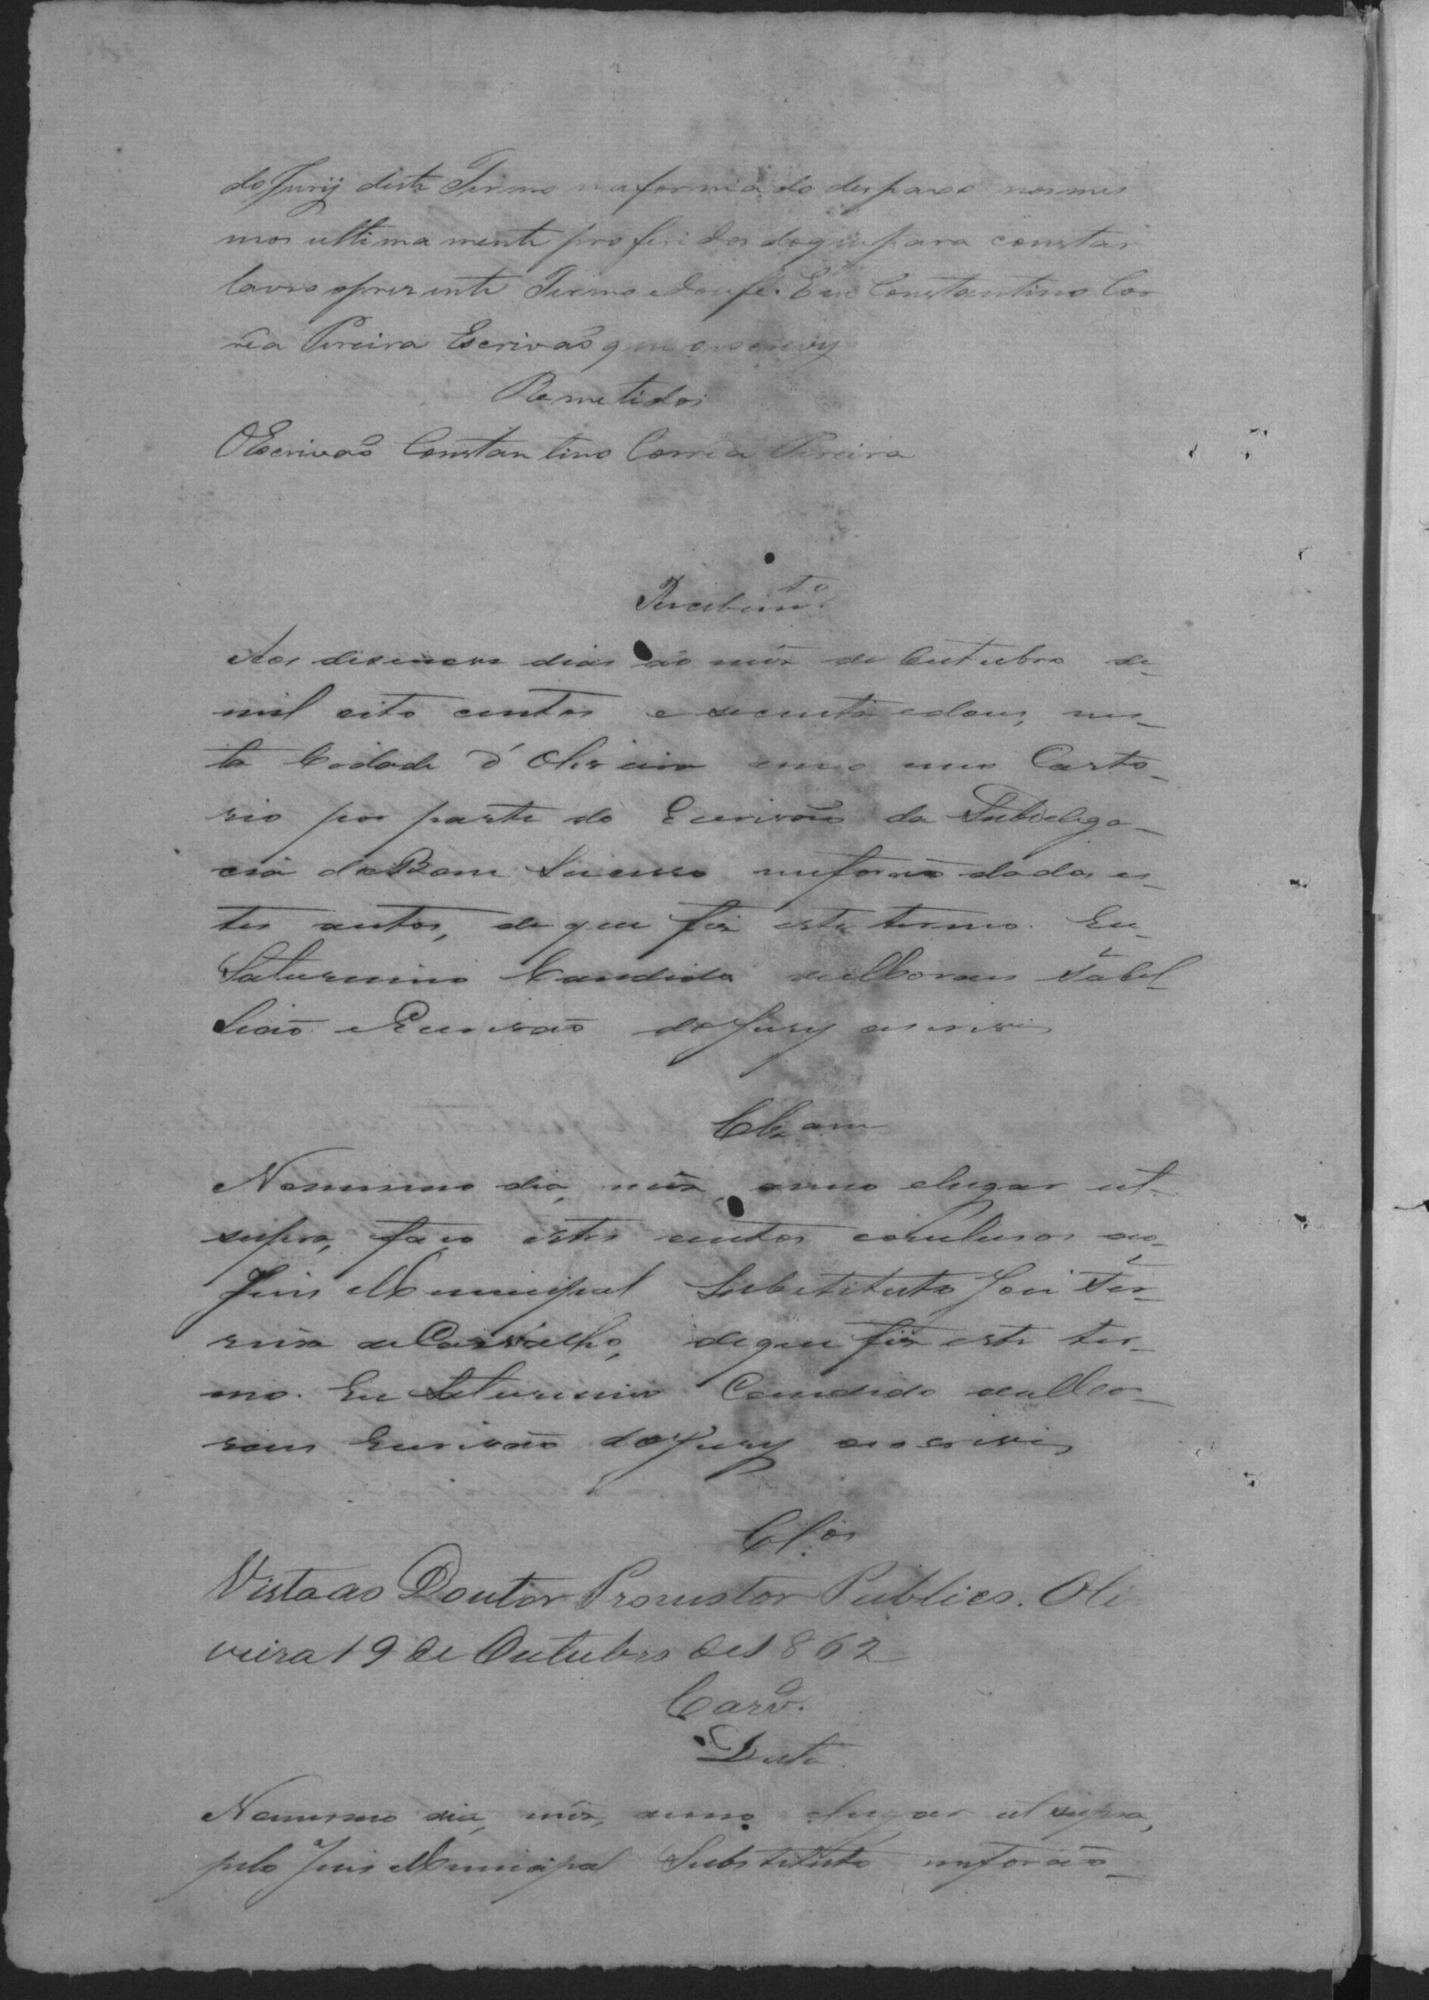 do Jury deste Termo na forma do despaxo nos mes
mos ultima mente proferidos do que para constar
lavro o prezente Termo e dou fé. Eu Constantino Cor
rêa Pereira Escrivaõ que o escrevy
Remetidos
O Escrivaõ Constantino Corrêa Pereira
Recebim.to
Aos desenove dias do mêz de Outubro de
mil oito centos e secenta e dous, nes-
ta Cidade d'Oliveira em o meu Carto-
rio por parte do Escrivaõ da Subdelega-
cia do Bom Sucesso me foraõ dados es-
tes autos, de que fiz este termo. Eu
Saturnino Candido de Moraes Tabel-
liaõ e Escrivaõ do Jury o escrevi
Clzam
No mesmo dia, mêz, anno e lugar ut
supra, faço estes autos conclusos ao
Juis Municipal Substituto José Fer-
reira de Carvalho, de que fiz este ter-
mo. Eu Saturnino Candido de Mo-
raes Escrivaõ do Jury o escrevi
Cl.os
Vista ao Doutor Promotor Publico. Oli
veira 19 de Outubro de 1862
Carv.o
Data
No mesmo dia, mêz, anno e lugar ut supra,
pelo Juis Municipal Substituto me foraõ